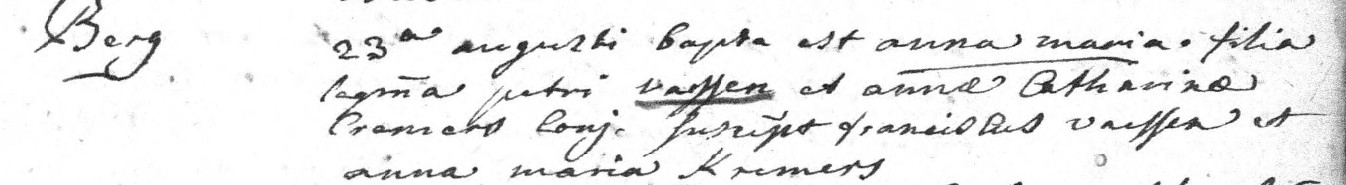 Berg
23ª augusti bapta est anna maria filia
legma petri vaessen et annæ Catharinæ
Cremers Conj. suscipt franciscus vaessen et
anna maria Kremers